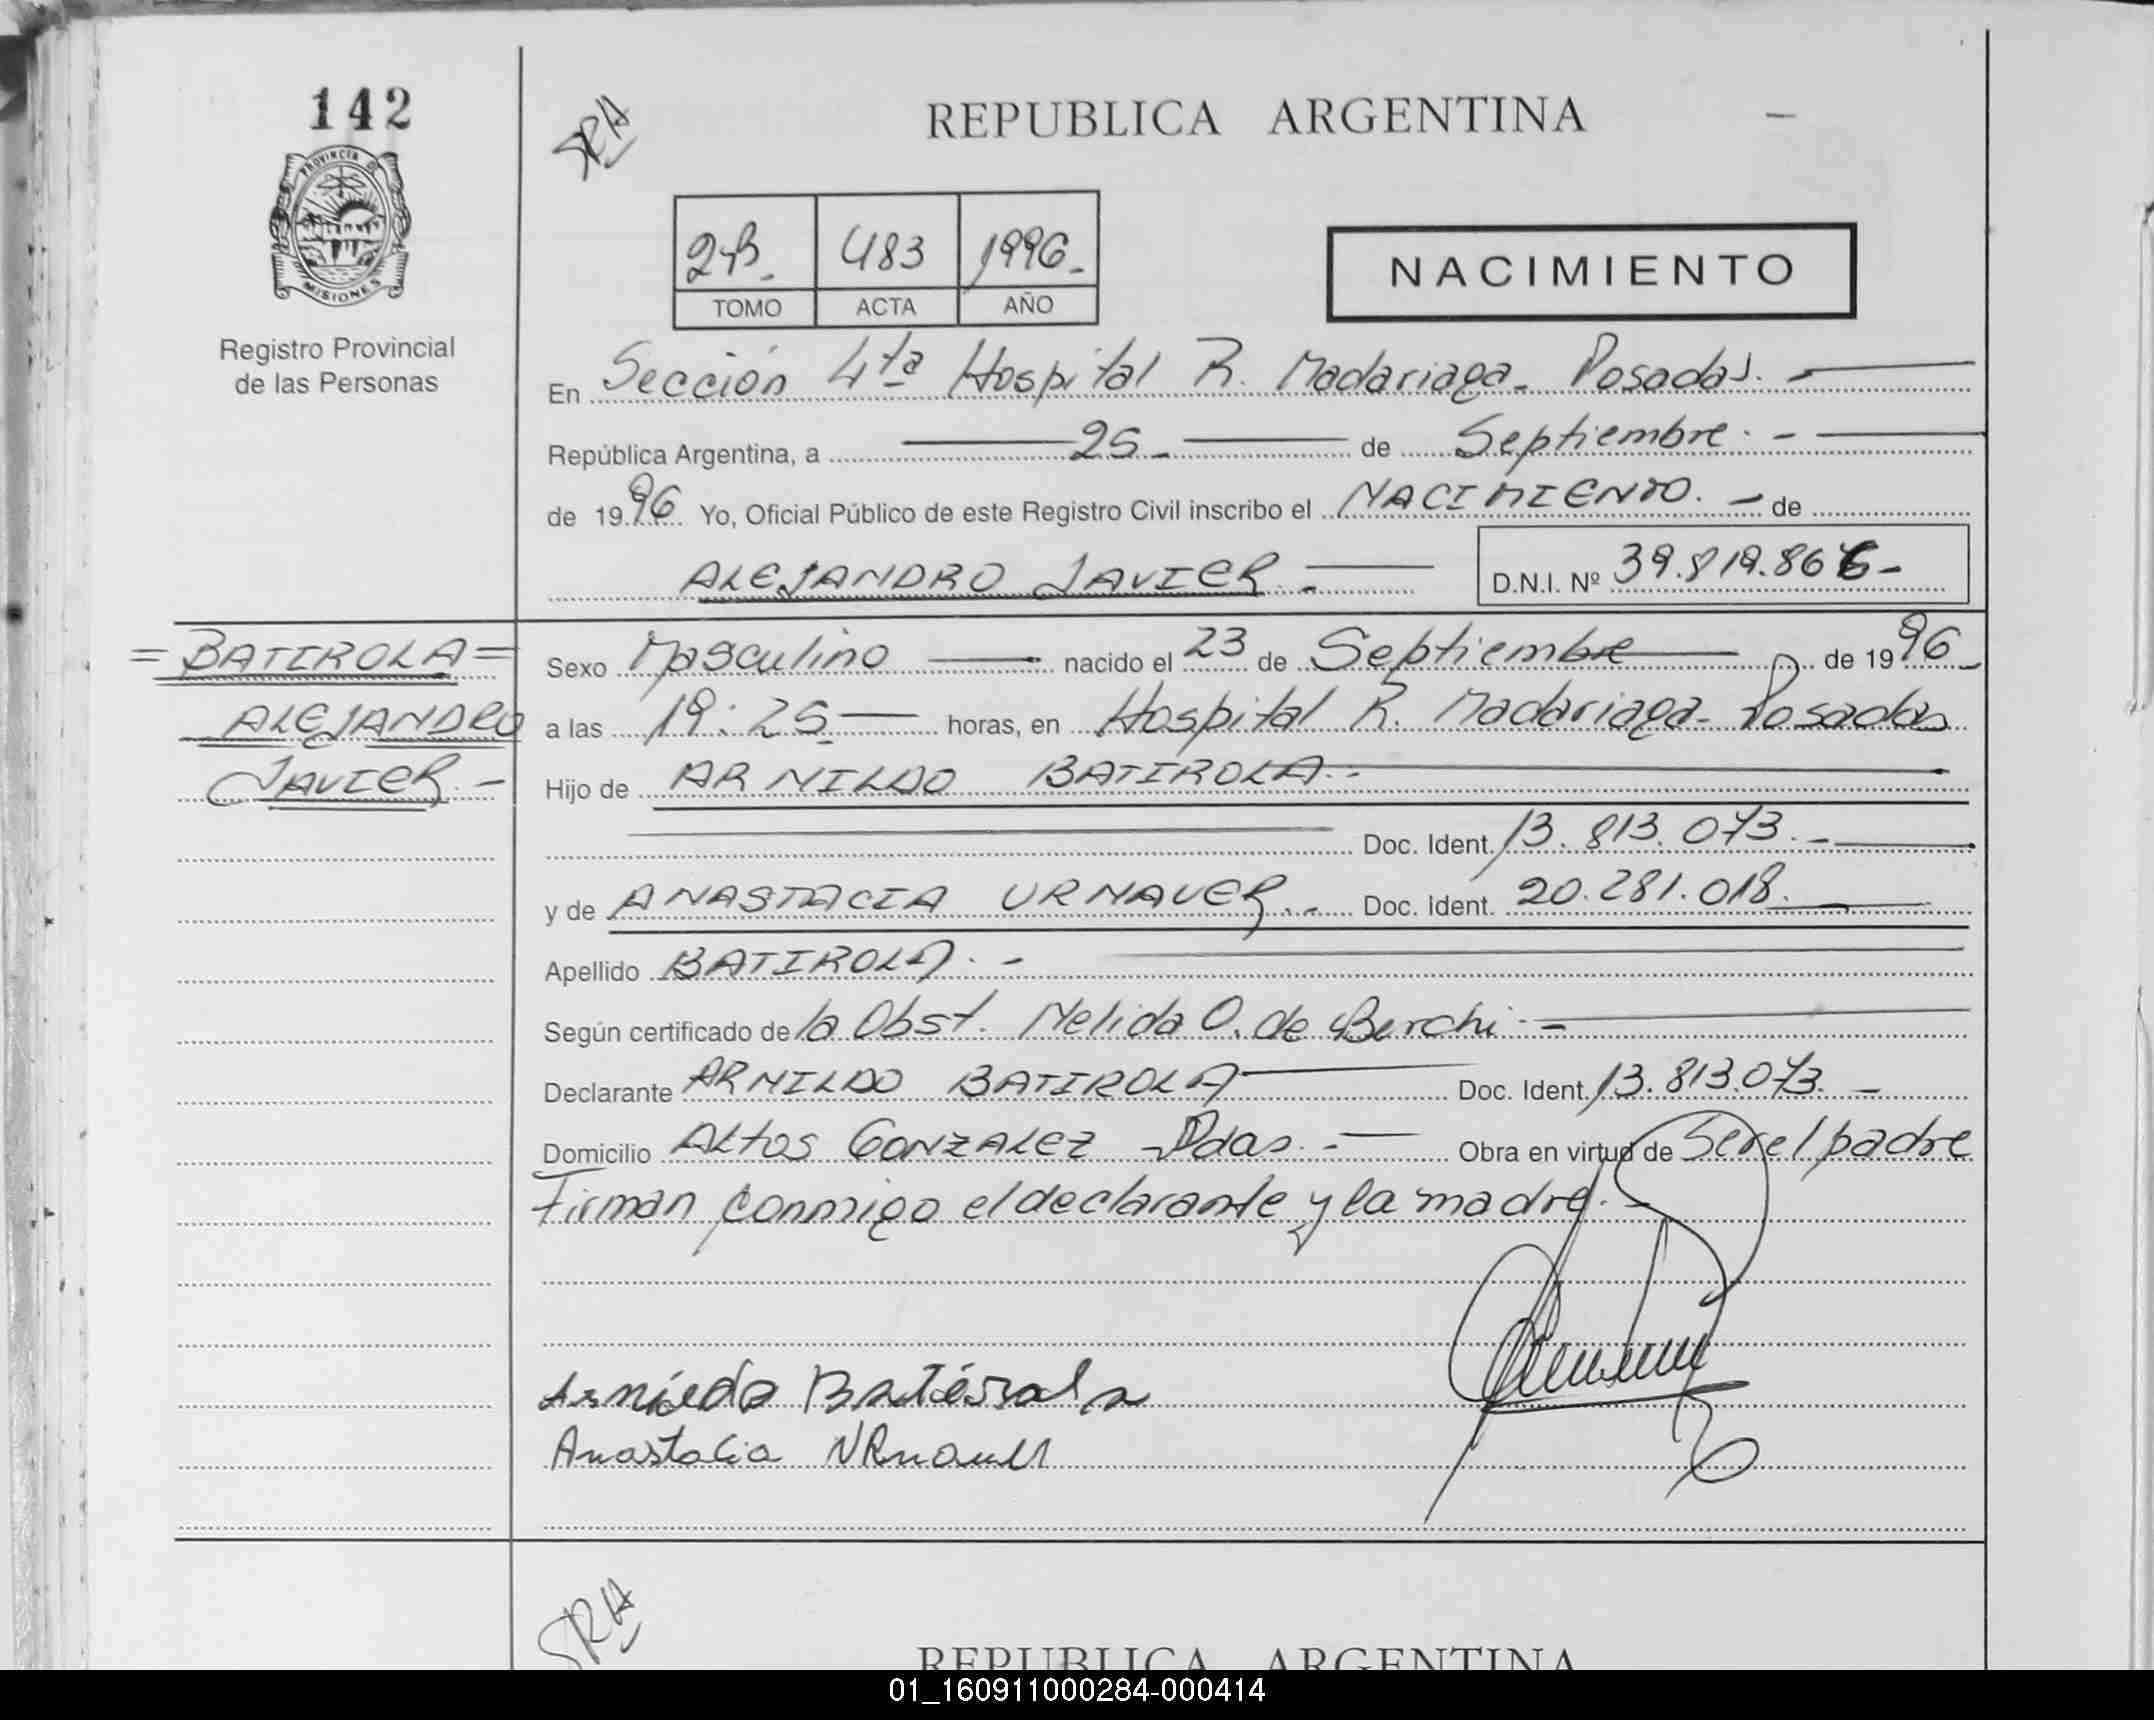 142
PROVINCIA D
MISIONES
Registro Provincial
de las Personas
SRA
REPUBLICA ARGENTINA
2B. 483 1996.
TOMO ACTA AÑO
NACIMIENTO
En Sección 4ta Hospital R. Madariaga - Posadas. -
República Argentina, a 25 - de Septiembre. -
de 1996 Yo, Oficial Público de este Registro Civil inscribo el NACIMIENTO. - de
ALEJANDRO JAVIER. - D.N.I. Nº 39.819.866-
= BATIROLA =
ALEJANDRO
JAVIER. -
Sexo Masculino nacido el 23 de Septiembre de 1996 -
a las 19:25 horas, en Hospital R. Madariaga - Posadas
Hijo de ARNILDO BATIROLA. -
Doc. Ident. 13.813.073. -
y de ANASTACIA URNAUER. - Doc. Ident. 20.281.018.
Apellido BATIROLA. -
Según certificado de la Obst. Nelida O. de Berchi. -
Declarante ARNILDO BATIROLA Doc. Ident. 13.813.073. -
Domicilio ALTOS GONZALEZ - Pdas. - Obra en virtud de Ser el padre
Firman conmigo el declarante y la madre. -
Arnildo Batirola
Anastacia URnauer
SRA
REPUBLICA ARGENTINA
01_160911000284-000414